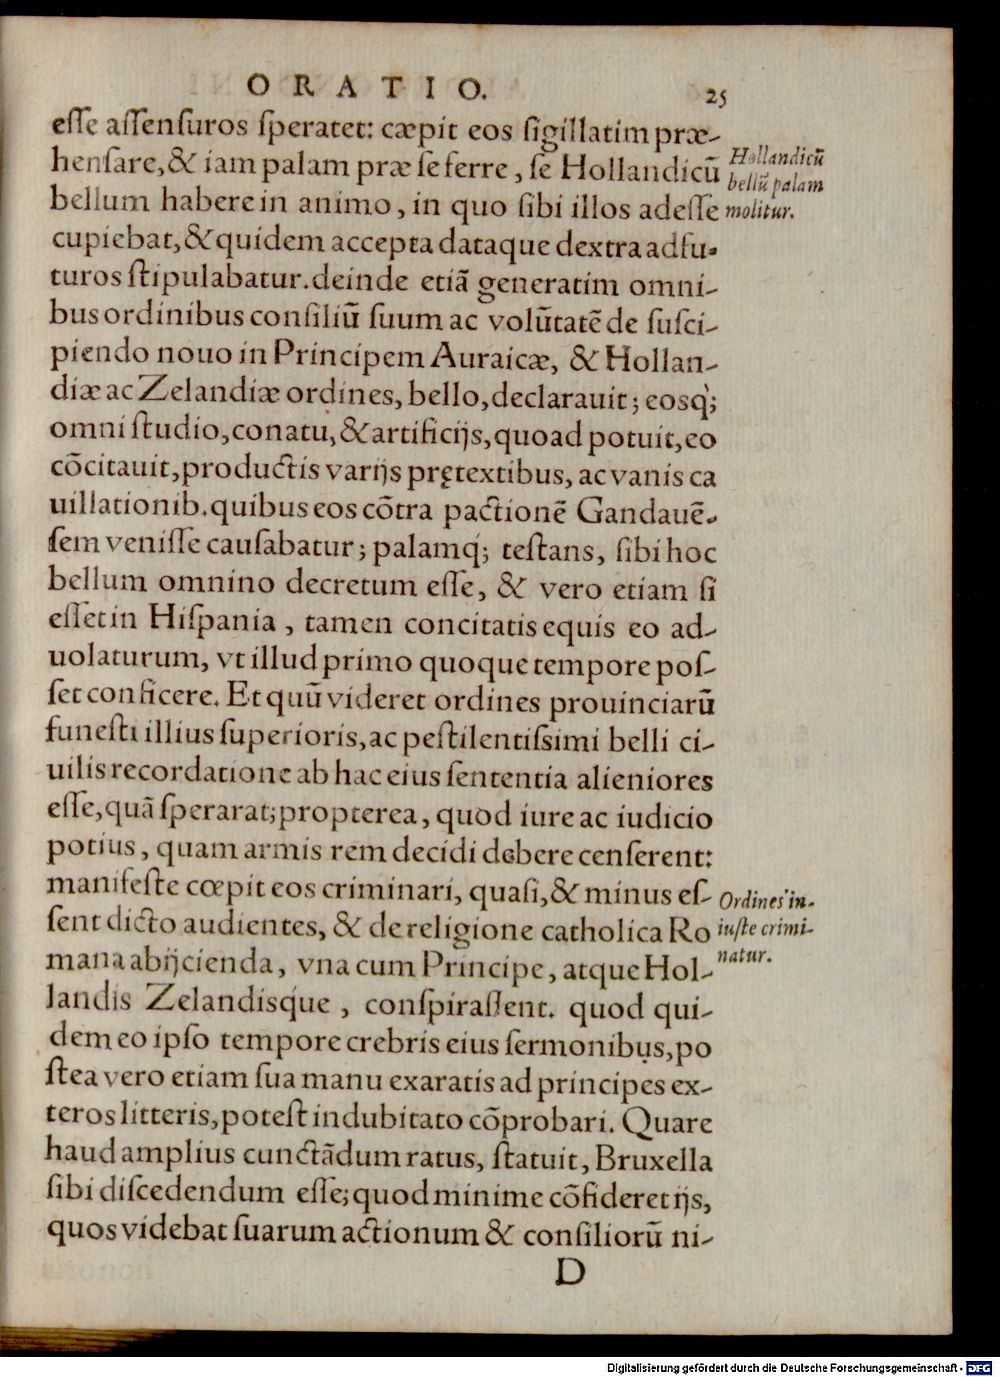 ORATIO. 25
eſſe aſſenſuros ſperatet: cæpit eos ſigillatim præ-
henſare, & iam palam præ ſe ferre, ſe Hollandicū
bellum habere in animo, in quo ſibi illos adeſſe
cupiebat, & quidem accepta dataque dextra adfu-
turos ſtipulabatur. deinde etiā generatim omni-
bus ordinibus conſiliū ſuum ac volūtatē de ſuſci-
piendo nouo in Principem Auraicæ, & Hollan-
diæ ac Zelandiæ ordines, bello, declarauit; eosq́;
omni ſtudio, conatu, & artificijs, quoad potuit, eo
cōcitauit, productis varijs prętextibus, ac vanis ca
uillationib. quibus eos cōtra pactionē Gandauē-
ſem veniſſe cauſabatur; palamq́; teſtans, ſibi hoc
bellum omnino decretum eſſe, & vero etiam ſi
eſſet in Hiſpania, tamen concitatis equis eo ad-
uolaturum, vt illud primo quoque tempore poſ-
ſet conficere. Et quū videret ordines prouinciarū
funeſti illius ſuperioris, ac peſtilentiſsimi belli ci-
uilis recordatione ab hac eius ſententia alieniores
eſſe, quā ſperarat; propterea, quod iure ac iudicio
potius, quam armis rem decidi debere cenſerent:
manifeſte cœpit eos criminari, quaſi, & minus eſ-
ſent dicto audientes, & de religione catholica Ro
mana abijcienda, vna cum Principe, atque Hol-
landis Zelandisque, conſpiraſſent. quod qui-
dem eo ipſo tempore crebris eius ſermonibus, po
ſtea vero etiam ſua manu exaratis ad principes ex-
teros litteris, poteſt indubitato cōprobari. Quare
haud amplius cunctādum ratus, ſtatuit, Bruxella
ſibi diſcedendum eſſe; quod minime cōfideret ijs,
quos videbat ſuarum actionum & conſiliorū ni-
D
Hollandicū
bellū palam
molitur.
Ordines in-
iuſte crimi-
natur.
Digitalisierung gefördert durch die Deutsche Forschungsgemeinschaft - DFG